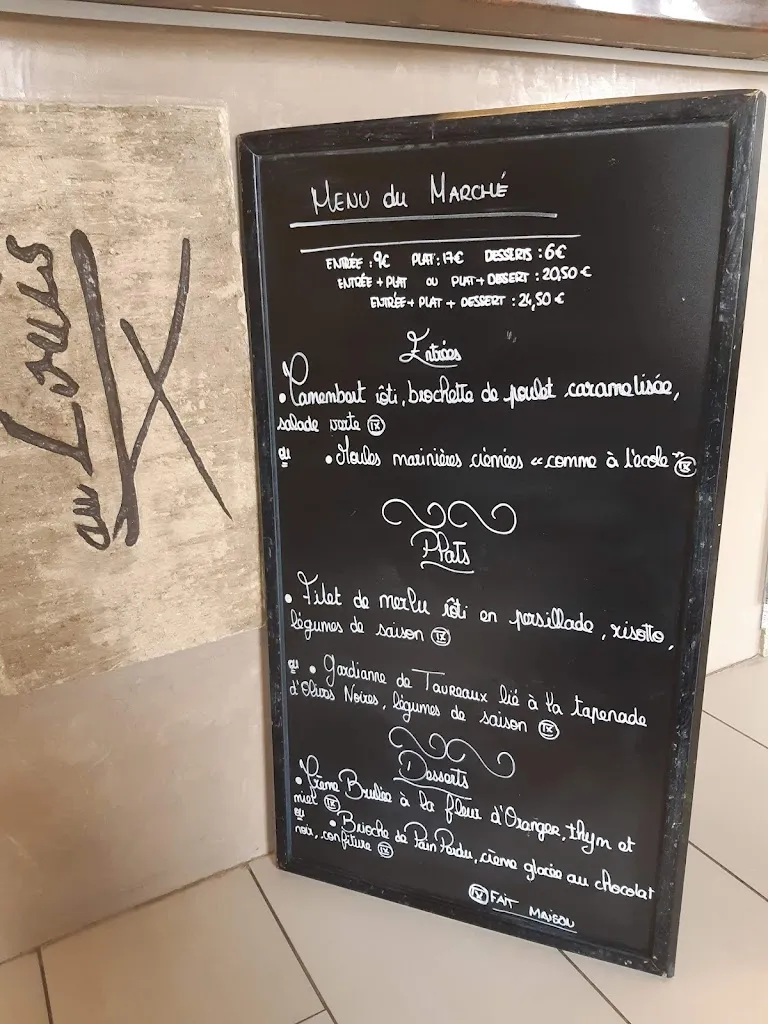 au Louis IX
MENU du MARCHÉ
ENTRÉE : 9€ PLAT : 17€ DESSERTS : 6€
ENTRÉE + PLAT OU PLAT + DESSERT : 20,50 €
ENTRÉE + PLAT + DESSERT : 24,50 €
Entrées
• Camembert rôti, brochette de poulet caramelisée,
salade verte IX
ou • Moules marinières crémées « comme à l'école » IX
Plats
• Filet de merlu rôti en persillade, risotto,
légumes de saison IX
ou • Gardianne de Taureaux lié à la tapenade
d'Olives Noires, légumes de saison IX
Desserts
• Crème Brulée à la fleur d'Oranger, thym et
miel IX
ou • Brioche de Pain Perdu, crème glacée au chocolat
noir, confiture IX
IX FAIT MAISON